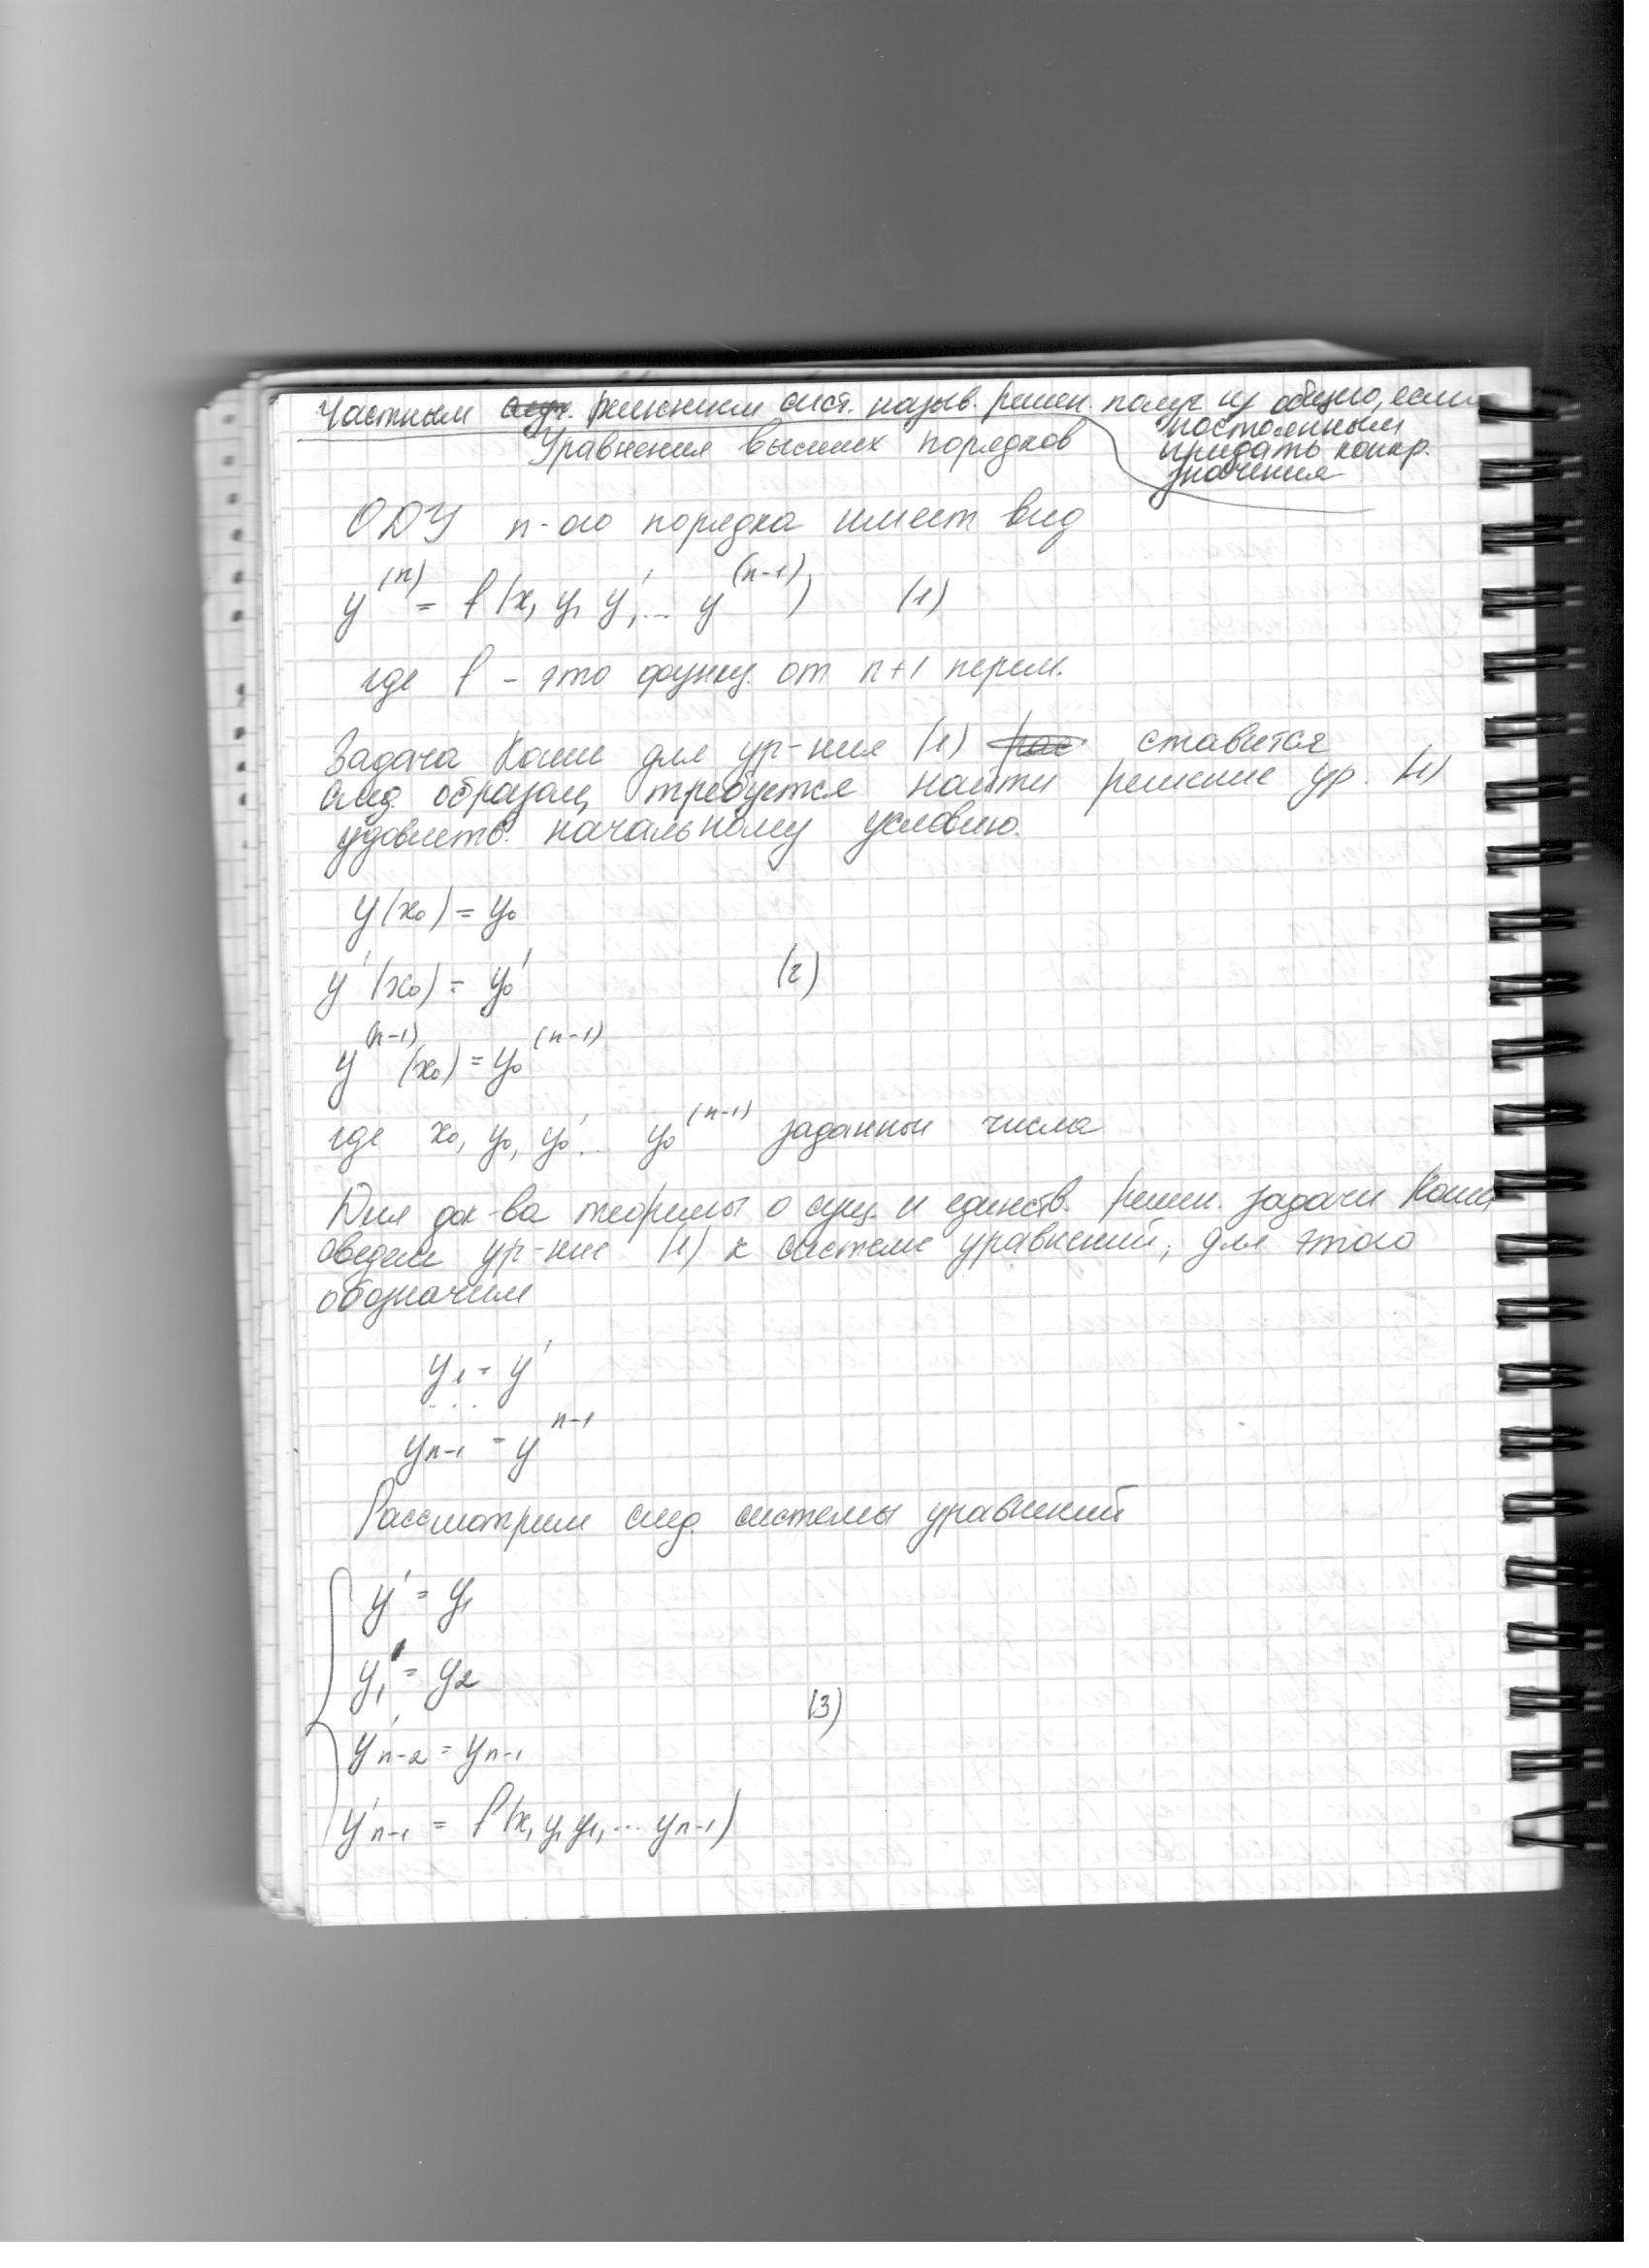 Частным решением сист. назыв. решен. получ из общего, если
постоянным
придать конкр.
значения
Уравнения высших порядков
ОДУ n-ого порядка имеет вид
y^(n) = f(x, y, y', ... y^(n-1)) (1)
где f - это функц. от n+1 перем.
Задача Коши для ур-ния (1) ставится
след. образом, требуется найти решение ур. (1)
удовлетв. начальному условию.
y(x₀) = y₀
y'(x₀) = y₀' (2)
y^(n-1)(x₀) = y₀^(n-1)
где x₀, y₀, y₀'... y₀^(n-1) заданные числа
Для док-ва теоремы о сущ. и единств. решен. задачи Коши
сведем ур-ние (1) к системе уравнений, для этого
обозначим
y₁ = y'
...
yₙ₋₁ = y^n-1
Рассмотрим след. системы уравнений
y' = y₁
y₁' = y₂
(3)
y'ₙ₋₂ = yₙ₋₁
y'ₙ₋₁ = f(x, y, y₁, ... yₙ₋₁)